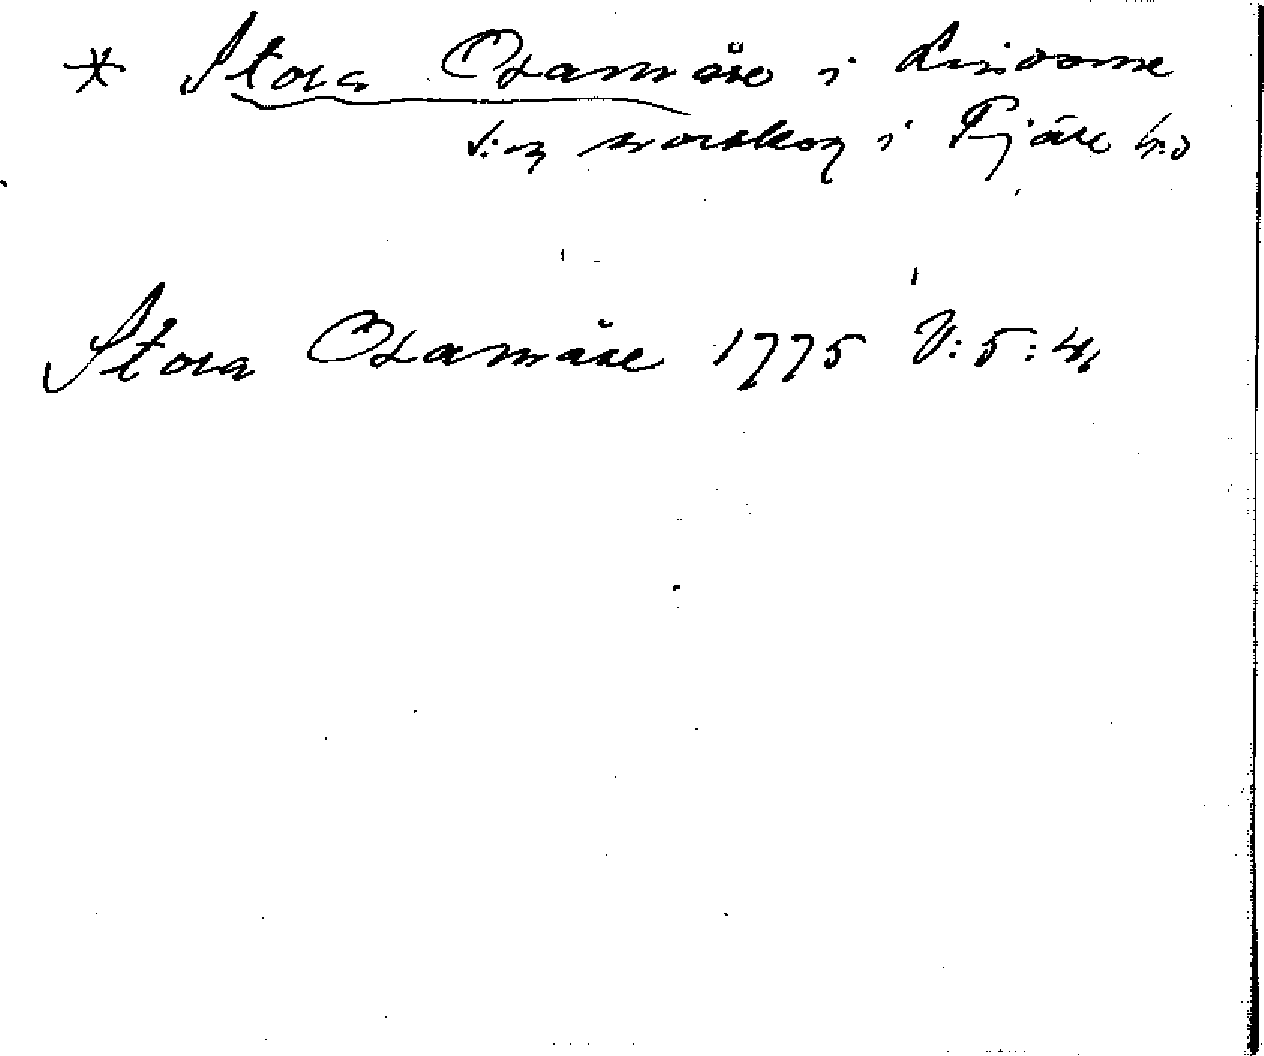 * Stora Oxamåse i Lindome
s:n i Fjäre h:d
Stora Oxamåse 1775 V:5:4